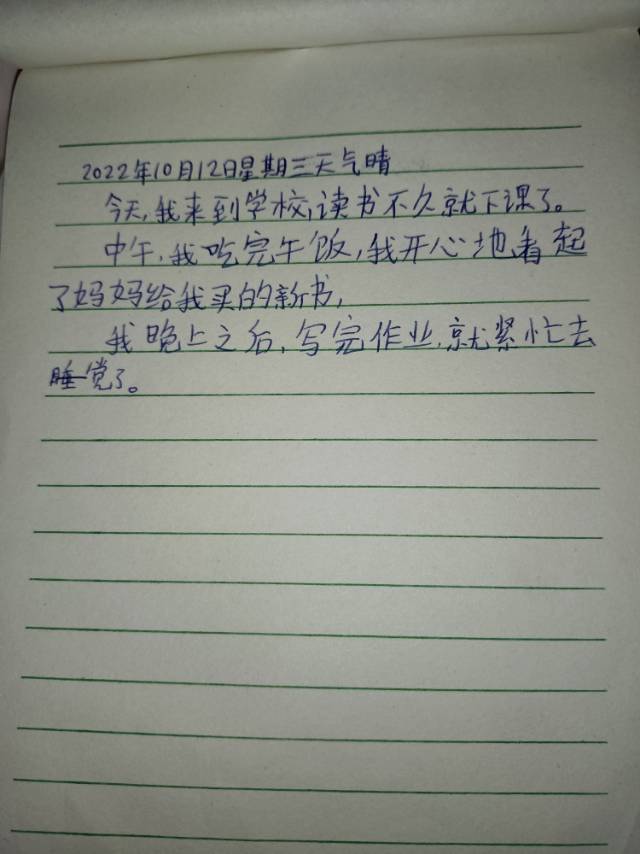 2022年10月12日星期三天气晴
今天,我来到学校,读书不久就下课了。
中午,我吃完午饭,我开心地看起
了妈妈给我买的新书,
我晚上之后,写完作业,就紧忙去
睡觉了。